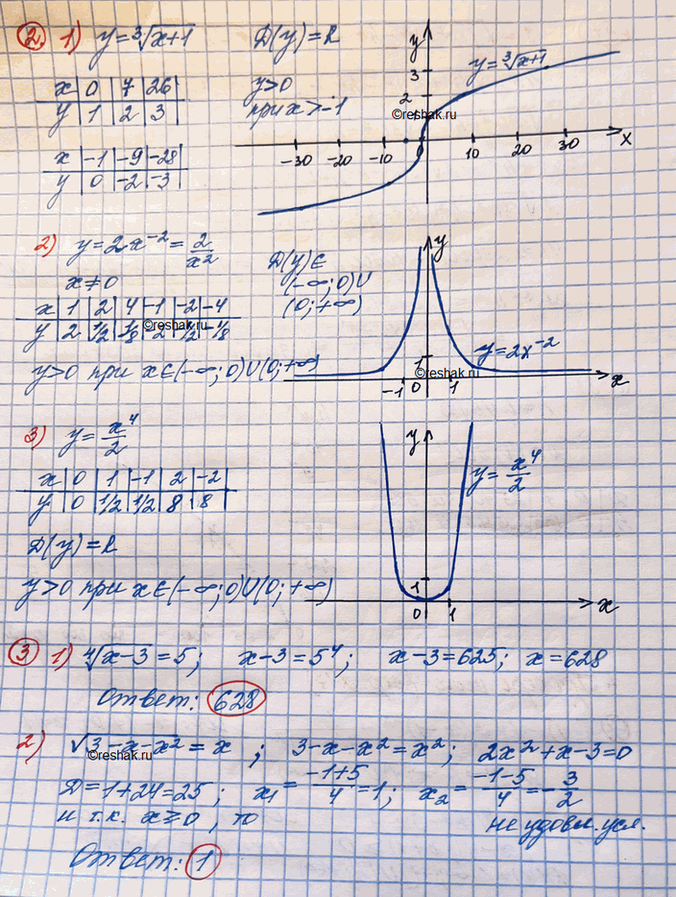 2. 1) y = ∛(x+1) D(y) = R
x | 0 | 7 | 26 |
y | 1 | 2 | 3 |
y > 0
при x > -1
x | -1 | -9 | -28
y | 0 | -2 | -3
y
3
2
1
y = ∛(x+1)
-30 -20 -10 0 10 20 30 x
©reshak.ru
2) y = 2·x⁻² = 2/x²
x ≠ 0
D(y) ∈
(-∞; 0) ∪
(0; +∞)
x | 1 | 2 | 4 | -1 | -2 | -4
y | 2 | 1/2 | 1/8 | 2 | 1/2 | -1/8
©reshak.ru
y > 0 при x ∈ (-∞; 0) ∪ (0; +∞)
y
1
y = 2x⁻²
©reshak.ru
-1 0 1 x
3) y = x⁴/2
x | 0 | 1 | -1 | 2 | -2
y | 0 | 1/2 | 1/2 | 8 | 8
D(y) = R
y > 0 при x ∈ (-∞; 0) ∪ (0; +∞)
y
y = x⁴/2
1
0 1 x
3 1) ⁴√(x-3) = 5; x-3 = 5⁴; x-3 = 625; x = 628
Ответ: 628
2) √(3-x-x²) = x ; 3-x-x² = x²; 2x²+x-3=0
©reshak.ru
D = 1+24 = 25; x₁ = (-1+5)/4 = 1; x₂ = (-1-5)/4 = -3/2
и т.к. x ⩾ 0, то не удовл. усл.
Ответ: 1
©reshak.ru